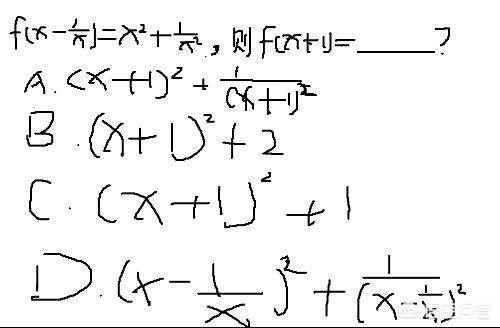 f(x-1/x)=x²+1/x²,则f(x+1)=______?
A.(x+1)²+1/(x+1)²
B.(x+1)²+2
C.(x+1)²+1
D.(x-1/x)²+1/(x-1/x)²